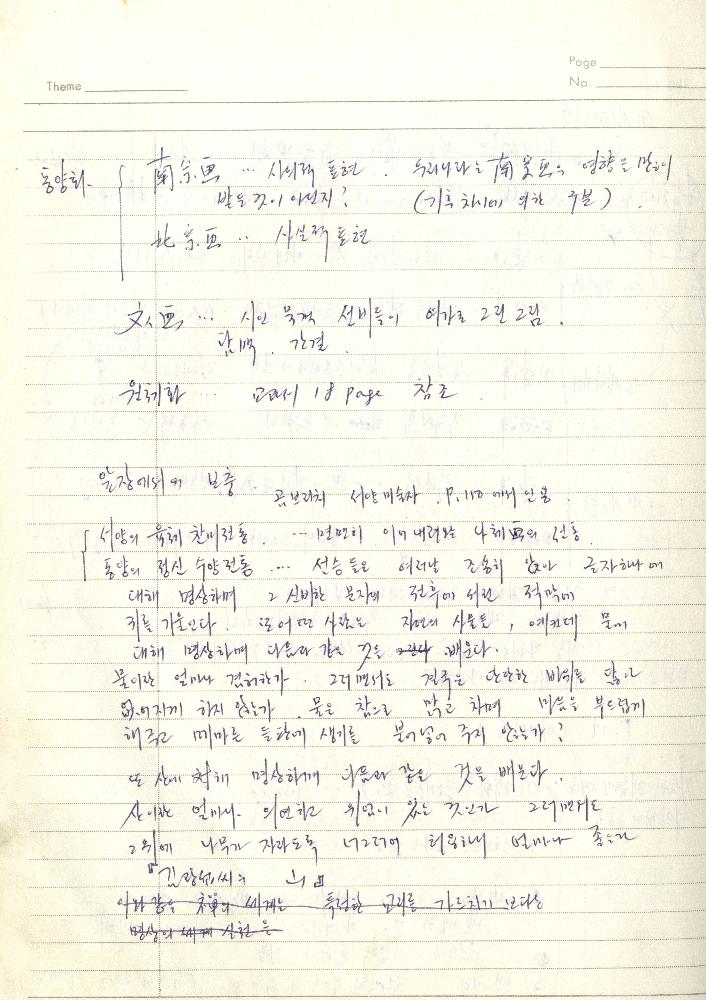 Page
Theme
No.
동양화. 南宗画 … 사의적 표현. 우리나라는 南宗画의 영향을 많이
받은 것이 아닌지? (기후 차이에 의한 구분).
北宗画 … 사실적 표현
文人画 … 시인 묵객 선비들이 여가로 그린 그림.
담백. 간결.
원체화 … 교과서 18 page 참조.
앞장에서의 보충.
곰브리치 서양미술사. P.110에서 인용.
서양의 육체 찬미전통. … 면면히 이어내려오는 나체画의 전통.
동양의 정신 수양전통 … 선승들은 여러날 조용히 앉아 글자 하나에
대해 명상하며 그 신비한 문자의 전후에 서린 적막에
귀를 기울인다. 또 어떤 사람은 자연의 사물들, 예컨데 물에
대해 명상하며 다음과 같은 것을 배운다.
물이란 얼마나 겸허한가. 그러면서도 결국은 단단한 바위를 닳아
없어지게 하지 않는가. 물은 참으로 맑고 차며 마음을 부드럽게
해주고 메마른 들판에 생기를 불어넣어 주지 않는가?
또 산에 対해 명상하며 다음과 같은 것을 배운다.
산이란 얼마나 의연하고 위엄이 있는 것인가 그러면서도
그 위에 나무가 자라도록 너그러이 허용하니 얼마나 좋은가
김광
이와 같은 禪의 세계는 특정한 교리를 가르치기 보다는
명상의 세계 실현은